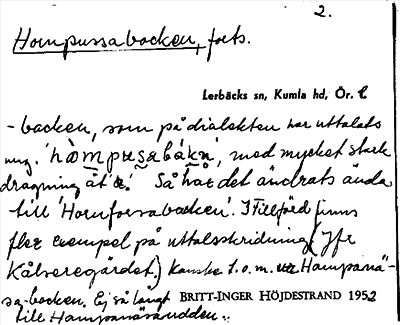 2.
Hornpussabacken, forts.
Lerbäcks sn, Kumla hd, Ör. l
-backen, som på dialekten har uttalats
ung. 'hòmpusabákn', med mycket stark
dragning åt 'a'. Så har det ändrats ända
till 'Hornforsabacken'. I Tillfärd finns
fler exempel på uttalsskridning (Jfr
Kålseregärdet.) Kanske t.o.m. Hampanä-
sa-backen. Ej så långt BRITT-INGER HÖJDESTRAND 1952
till Hampanäsaudden.